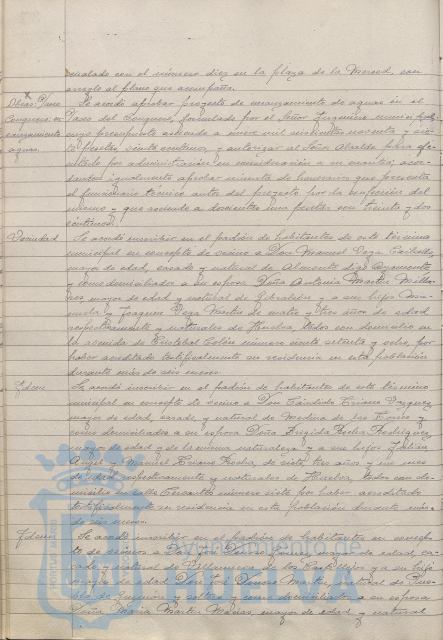 cualado con el número diez en la plaza de la Merced, con
arreglo al plano que acompaña.
Obras: Paseo
Congreso: en-
cauzamiento
aguas.
Se acordó aprobar proyecto de encauzamiento de aguas en el
Paseo del Congreso, formulado por el Señor Ingeniero municipal,
cuyo presupuesto asciende a nueve mil noventa y
pesetas, céntimos, y autorizar al Señor Alcalde para efec-
tuarlo por administración en consideración a su cuantía; acor-
dando igualmente aprobar minuta de honorarios que presenta
el funcionario técnico autor del proyecto por la confección del
mismo y que asciende a doscientas una pesetas con treinta y dos
céntimos.
Vecindad.
Se acordó inscribir en el padrón de habitantes de este término
municipal en concepto de vecino a Don Manuel Vega
mayor de edad, casado y natural de Almonte
y como domiciliados a su esposa Doña Antonia Martín
mayor de edad y natural de Gibraleón y a sus hijos Ma-
nuela y Joaquín Vega Martín de y tres años de edad
respectivamente y naturales de Huelva, todos con domicilio en
la avenida de Cristobal Colón número ciento setenta y ocho, por
haber acreditado testificalmente su residencia en esta población
durante más de seis meses.
Idem
Se acordó inscribir en el padrón de habitantes de este término
municipal en concepto de vecino a Don Cándido Triano Vazquez
mayor de edad, casado y natural de Medina de las Torres y
como domiciliados a su esposa Doña Brigida Rocha Rodríguez,
mayor de edad y de la misma naturaleza y a sus hijos Julián
Angel y Manuel Triano Rocha, de siete, tres años y un mes
de edad respectivamente y naturales de Huelva, todos con do-
micilio en calle Cervantes número siete por haber acreditado
testificalmente su residencia en esta población durante más
de seis meses.
Idem
Se acordó inscribir en el padrón de habitantes en concep-
to de vecinos a Don mayor de edad, ca-
sado y natural de Villanueva de los Castillejos y a su hijo
mayor de edad Don José Martín, natural de Pue-
bla de Guzmán y soltero y como domiciliados a su esposa
Doña María Martín Macías, mayor de edad y natural
Ayuntamiento de
HUELVA